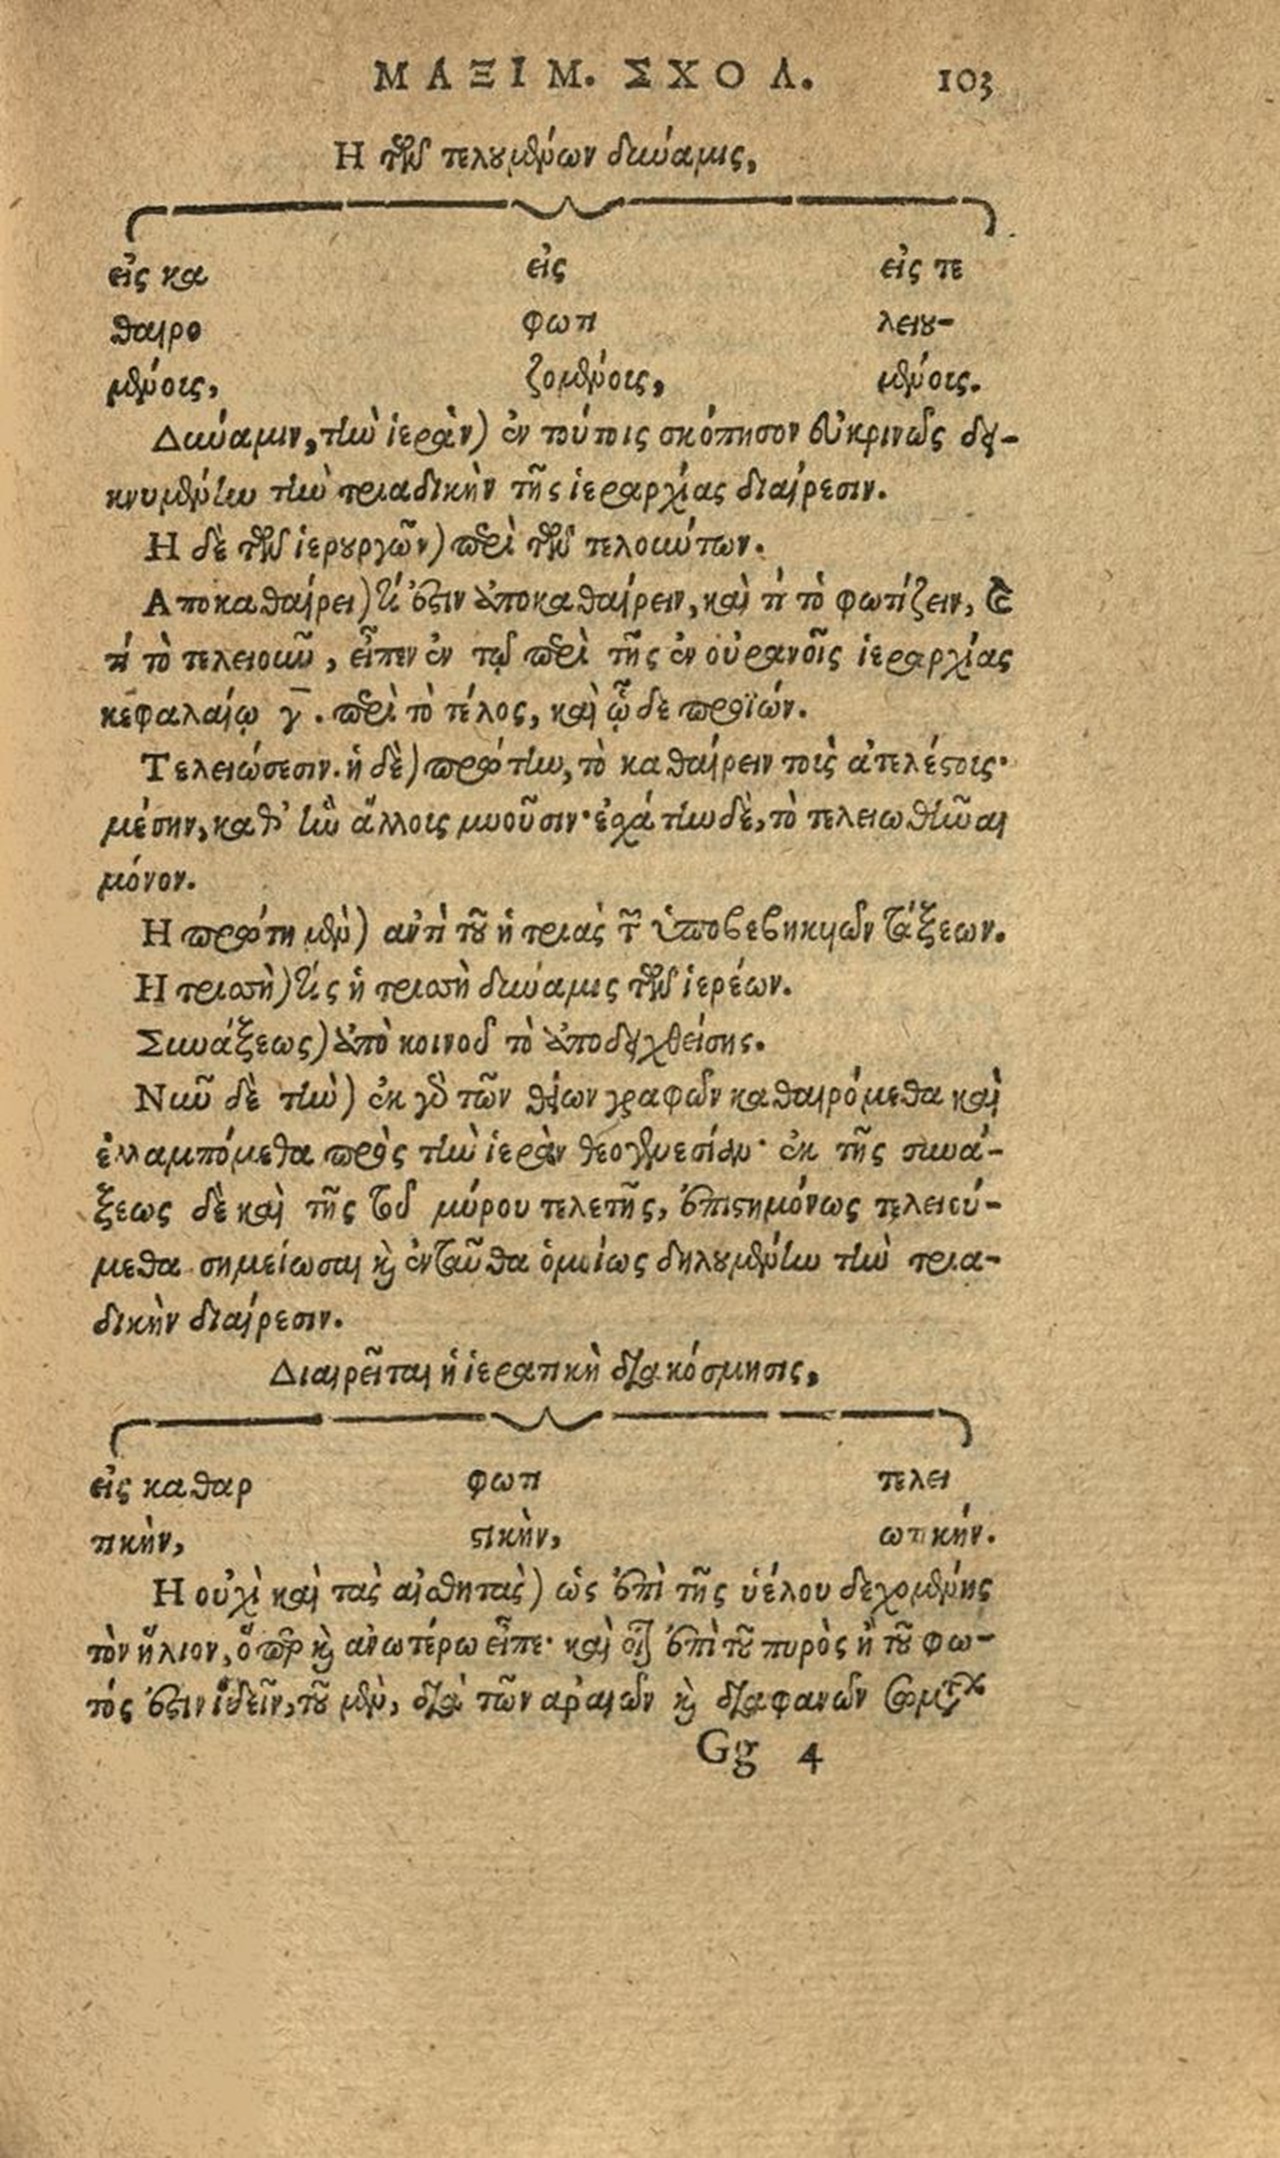 ΜΑΞΙΜ. ΣΧΟΛ. 103
Η τῶν τελουμένων δύναμις,
εἰς κα εἰς εἰς τε
θαιρο φωτι λειου-
μένοις, ζομένοις, μένοις.
Δύναμιν, τὴν ἱερὰν) ἐν τούτοις σκόπησον εὐκρινῶς δει-
κνυμένην τὴν τριαδικὴν τῆς ἱεραρχίας διαίρεσιν.
Η δὲ τῶν ἱερουργῶν) περὶ τῶν τελούντων.
Αποκαθαίρει) τί ἐστιν ἀποκαθαίρειν, καὶ τί τὸ φωτίζειν, καὶ
τί τὸ τελειοῦν, εἶπεν ἐν τῷ περὶ τῆς ἐν οὐρανοῖς ἱεραρχίας
κεφαλαίῳ γ̅. περὶ τὸ τέλος, καὶ ὧδε προϊών.
Τελειώσεσιν. ἡ δὲ) πρώτην, τὸ καθαίρειν τοὺς ἀτελέστοις·
μέσην, καθ' ἣν ἄλλοις μυοῦσιν· ἐσχάτην δὲ, τὸ τελειωθῆναι
μόνον.
Η πρώτη μὲν) ἀντὶ τοῦ ἡ τριὰς τῶν ὑποβεβηκυιῶν τάξεων.
Η τρισσὴ) τίς ἡ τρισσὴ δύναμις τῶν ἱερέων.
Συνάξεως) ἀπὸ κοινοῦ τὸ ἀποδειχθείσης.
Νῦν δὲ τὴν) ἐκ γὰρ τῶν θείων γραφῶν καθαιρόμεθα καὶ
ἐλλαμπόμεθα πρὸς τὴν ἱερὰν θεογενεσίαν· ἐκ τῆς συνά-
ξεως δὲ καὶ τῆς τοῦ μύρου τελετῆς, ἐπιστημόνως τελειού-
μεθα σημείωσαι καὶ ἐνταῦθα ὁμοίως δηλουμένην τὴν τρια-
δικὴν διαίρεσιν.
Διαιρεῖται ἡ ἱερατικὴ διακόσμησις,
εἰς καθαρ φωτι τελει
τικὴν, στικὴν, ωτικήν.
Η οὐχὶ καὶ τὰς αἰσθητὰς) ὡς ἐπὶ τῆς ὑέλου δεχομένης
τὸν ἥλιον, ὅπερ καὶ ἀνωτέρω εἶπε· καὶ οἷον ἐπὶ τοῦ πυρὸς ἢ τοῦ φω-
τός ἐστιν ἰδεῖν, τοῦ μὲν, διὰ τῶν ἀραιῶν καὶ διαφανῶν
Gg 4